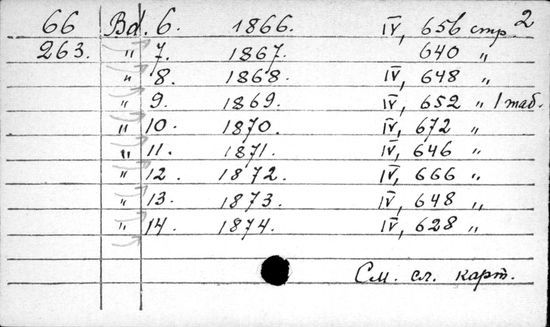 2
66 Bd. 6. 1866. IV, 656 стр.
263. " 7. 1867. 640 "
" 8. 1868. IV, 648 "
" 9. 1869. IV, 652 " 1 таб.
" 10. 1870. IV, 672 "
" 11. 1871. IV, 646 "
" 12. 1872. IV, 666 "
" 13. 1873. IV, 648 "
" 14. 1874. IV, 628 "
См. сл. карт.